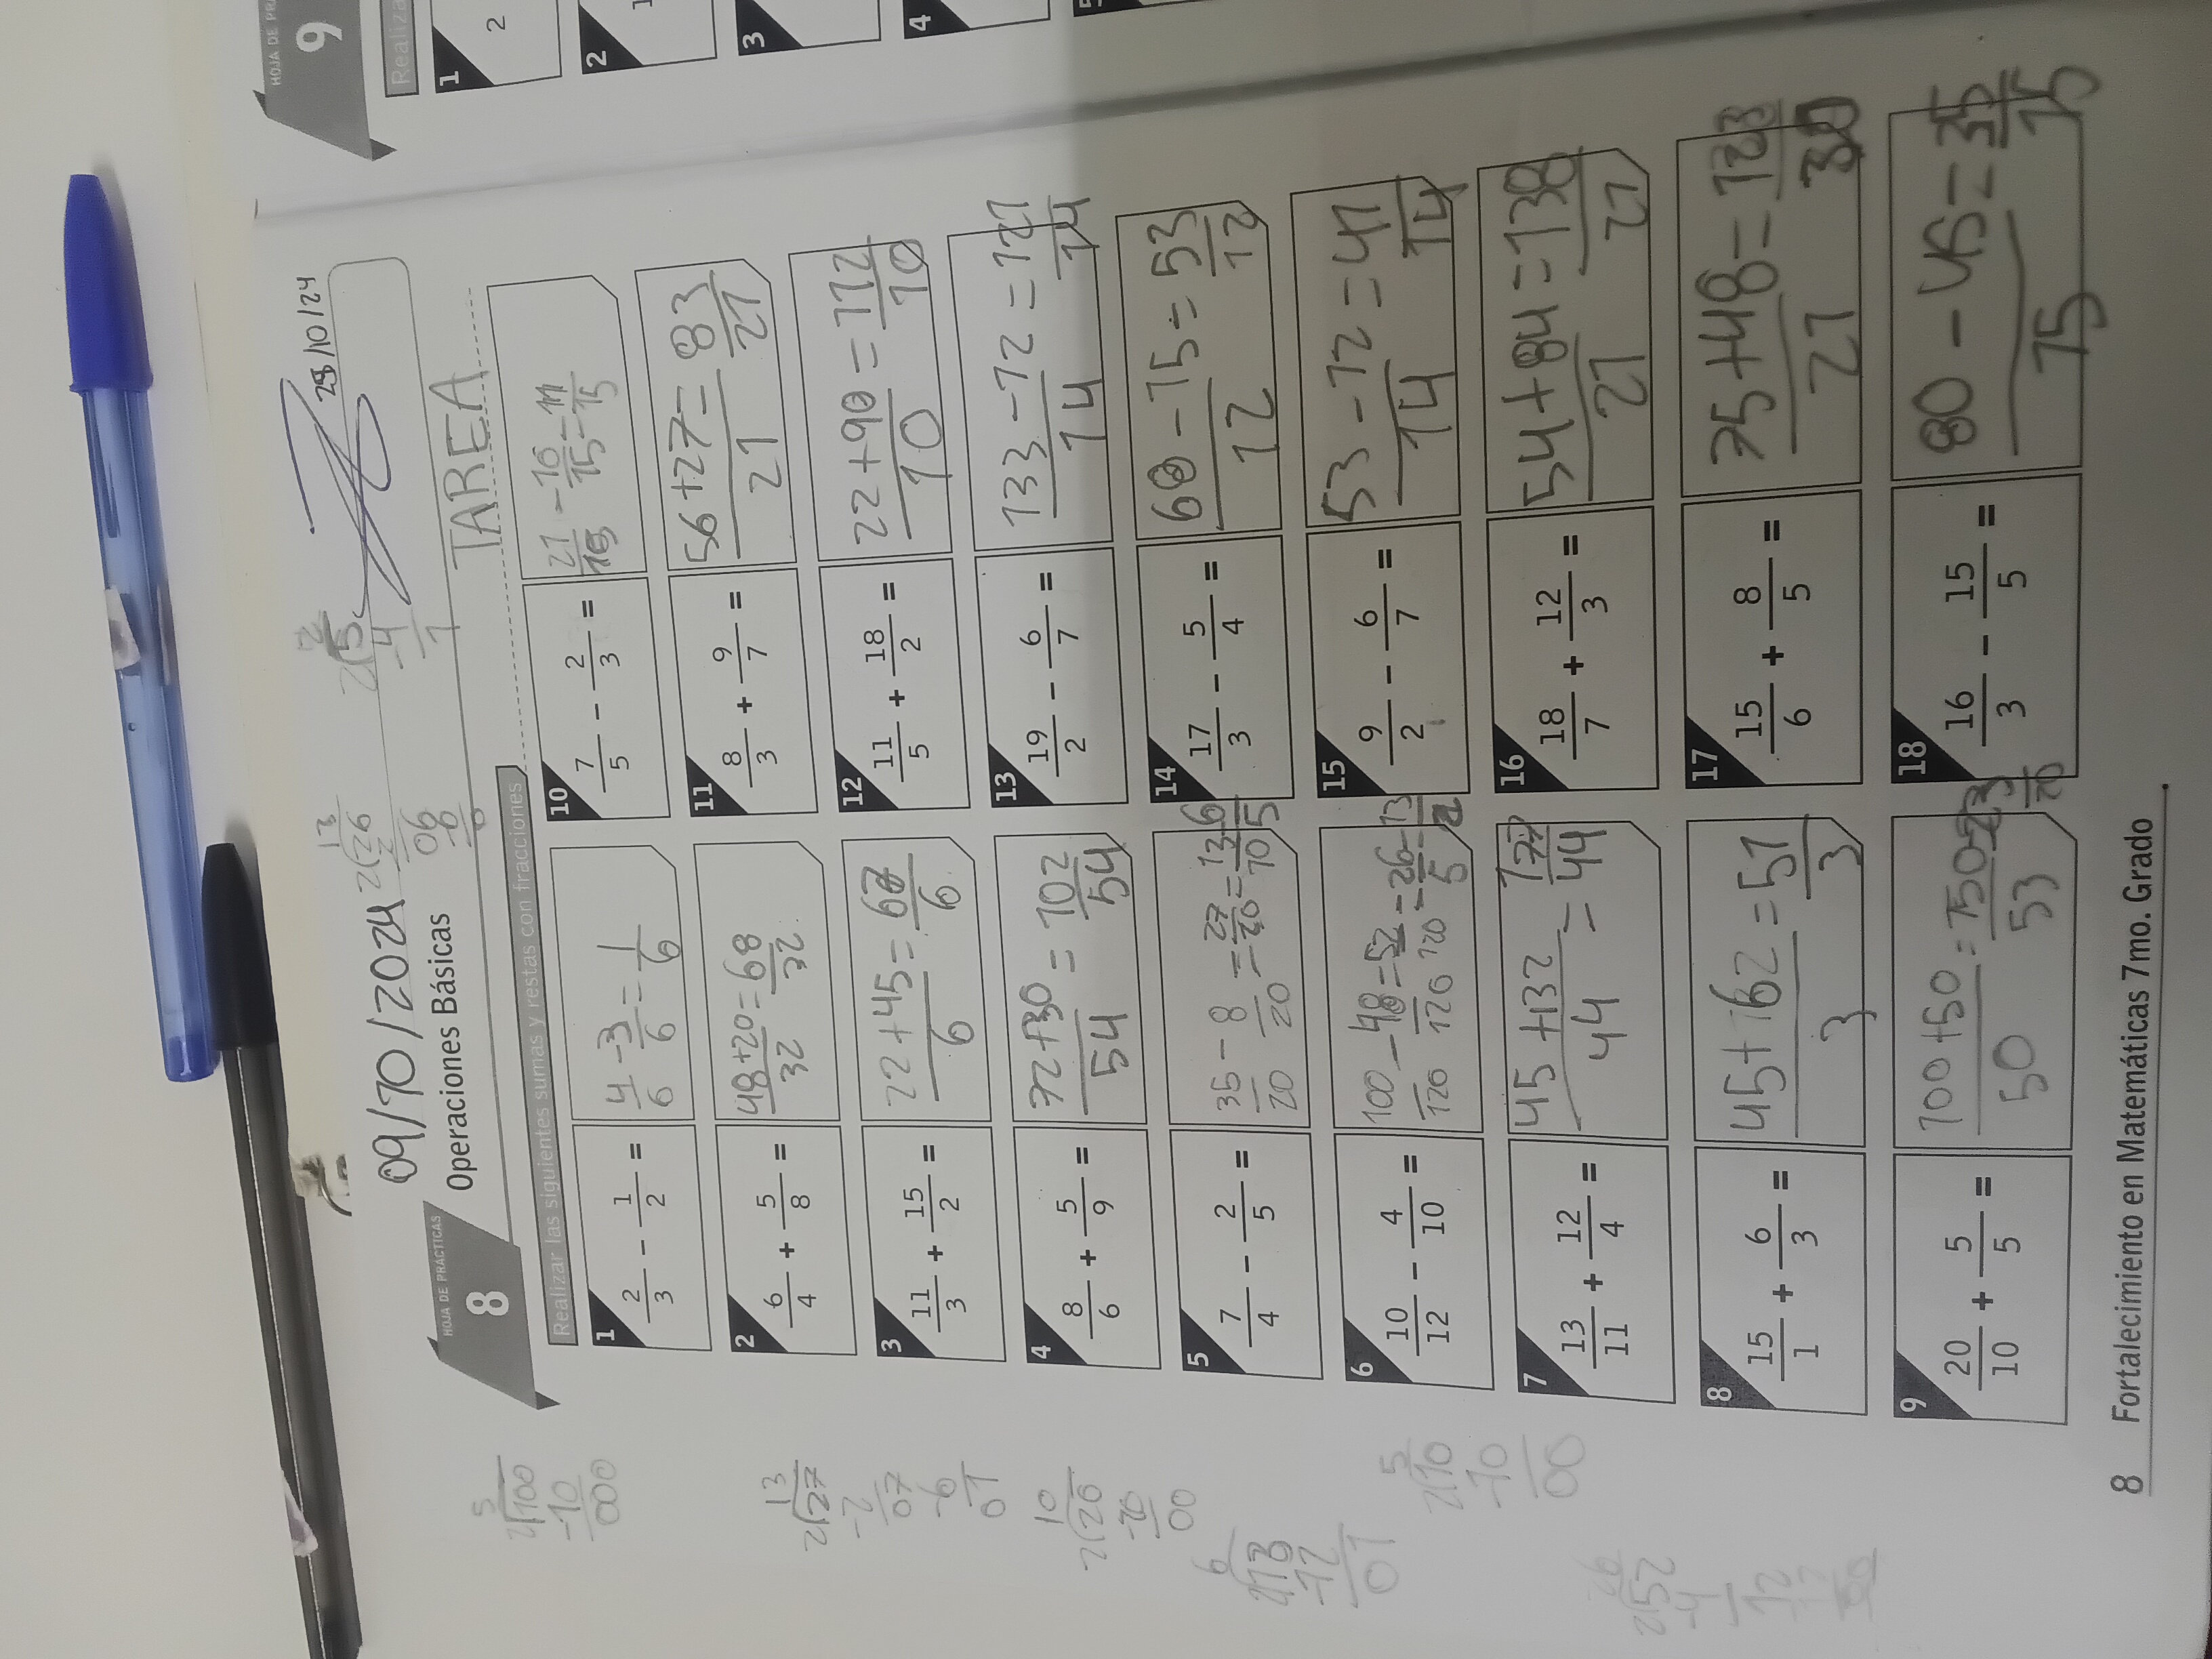 09/10/2024
28/10/24
HOJA DE PRÁCTICAS
8
Operaciones Básicas
TAREA
Realizar las siguientes sumas y restas con fracciones
1
2/3 - 1/2 =
4/6 - 3/6 = 1/6
2
6/4 + 5/8 =
48+20/32 = 68/32
3
11/3 + 15/2 =
22+45/6 = 67/6
4
8/6 + 5/9 =
72+30/54 = 102/54
5
7/4 - 2/5 =
35/20 - 8/20 = 27/20 = 13/10 6/5
6
10/12 - 4/10 =
100/120 - 48/120 = 52/120 = 26/5 = 13/2
7
13/11 + 12/4 =
45+132/44 = 177/44
8
15/1 + 6/3 =
45+162/3 = 51/3
9
20/10 + 5/5 =
100+50/50 = 150/53
10
7/5 - 2/3 =
21/15 - 10/15 = 11/15
11
8/3 + 9/7 =
56+27/21 = 83/21
12
11/5 + 18/2 =
22+90/10 = 112/10
13
19/2 - 6/7 =
133-12/14 = 121/14
14
17/3 - 5/4 =
68-15/12 = 53/12
15
9/2 - 6/7 =
53-12/14 = 41/14
16
18/7 + 12/3 =
54+84/21 = 138/21
17
15/6 + 8/5 =
75+48/21 = 123
18
16/3 - 15/5 =
80-45/15 = 35/15
8 Fortalecimiento en Matemáticas 7mo. Grado
HOJA DE PR
9
Realiza
1
2
2
3
4